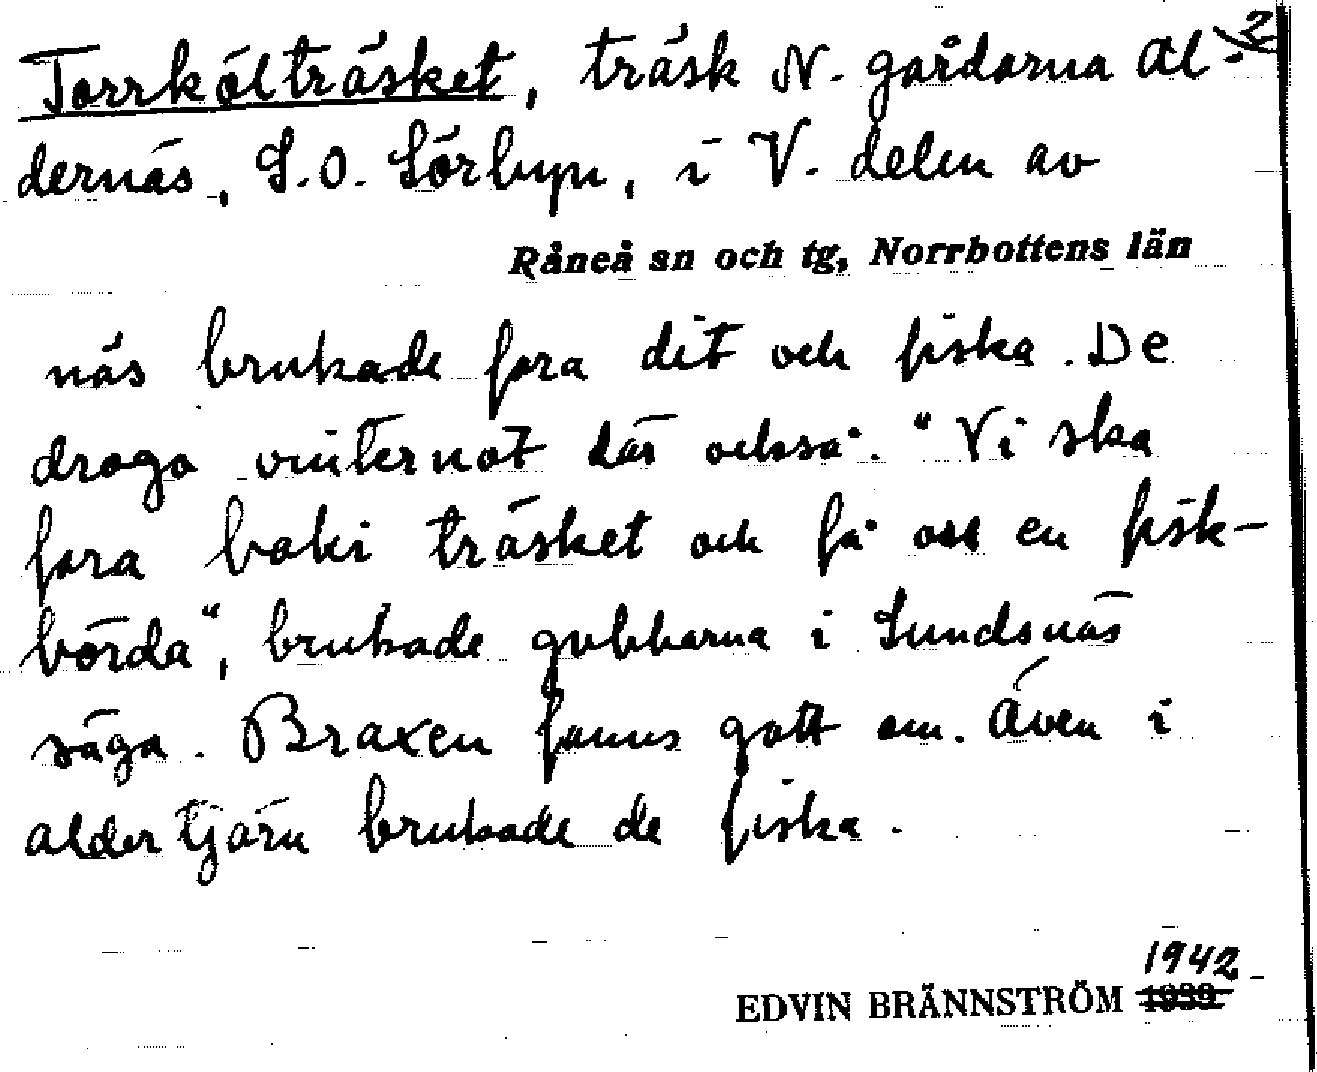 2
Torrkölträsket, träsk N. gårdarna Al-
dernäs, S.O. Sörbyn, i V. delen av
Råneå sn och tg, Norrbottens län
näs brukade fara dit och fiska. De
drogo vinternot där också. "Vi ska
fara baki träsket och få oss en fisk-
börda", brukade gubbarna i Sundsnäs
säga. Braxen fanns gott om. Även i
aldertjärn brukade de fiska.
1942
EDVIN BRÄNNSTRÖM 1939